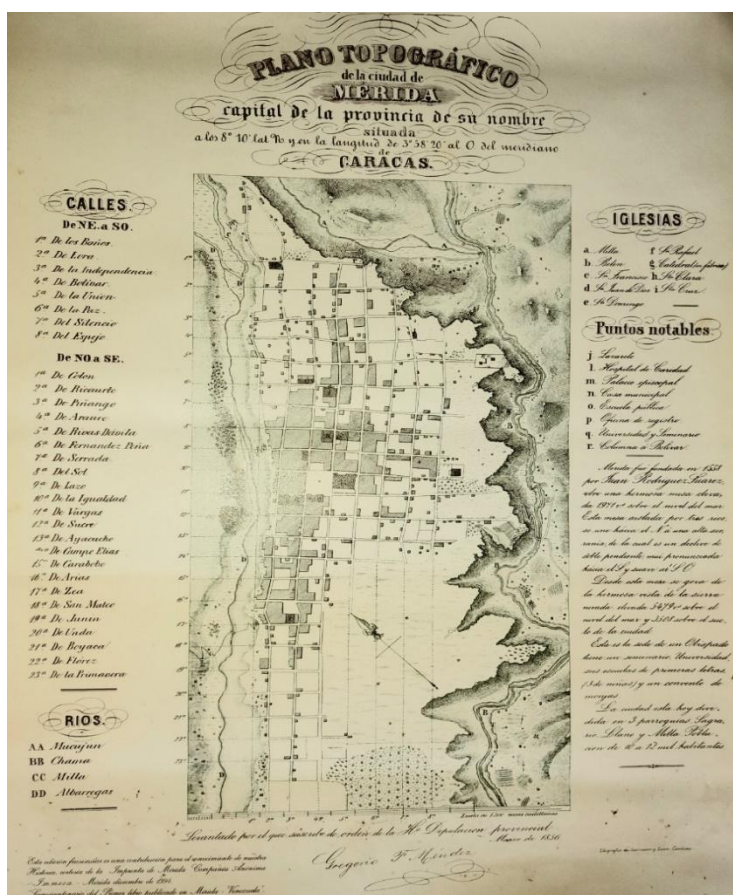 PLANO TOPOGRÁFICO
de la ciudad de
MÉRIDA
capital de la provincia de su nombre
situada
a los 8° 10' lat N y en la longitud de 3° 58' 20" al O del meridiano
de
CARACAS.
CALLES.
De NE. a SO.
1ª De los Baños.
2ª De Lora
3ª De la Independencia
4ª De Bolívar
5ª De la Union
6ª De la Paz.
7ª Del Silencio
8ª Del Espejo
De NO a SE.
1ª De Colon
2ª De Ricaurte
3ª De Piñango
4ª De Araure
5ª De Rivas Dávila
6ª De Fernandez Peña
7ª De Serrada
8ª Del Sol
9ª De Lazo
10ª De la Igualdad
11ª De Vargas
12ª De Sucre
13ª De Ayacucho
De Campo Elias
15ª De Carabobo
16ª De Arias
17ª De Zea
18ª De San Mateo
19ª De Junin
20ª De Uzda
21ª De Boyaca
22ª De Flórez
23ª De la Primavera
RIOS.
AA Mucujun
BB Chama
CC Milla
DD Albarregas
IGLESIAS
a. Milla f. Sn Rafael
b. Belen g. Catedral (en fábrica)
c. Sn Francisco h. Sta Clara
d. Sn Juan de Dios i. Sta Cruz
e. Sto Domingo
Puntos notables
j Lazareto
l. Hospital de Caridad
m. Palacio episcopal
n. Casa municipal
o. Escuela pública
p. Oficina de registro
q. Universidad y Seminario
r. Columna á Bolívar
Merida fue fundada en 1558
por Juan Rodriguez Suarez
sobre una hermosa mesa eleva-
da sobre el nivel del mar.
Esta mesa aislada por tres
hacia el N a una alta
de la cual es un declive de
doble pendiente mas pronunciada
hacia el S y suave al S O.
Desde esta mesa se goza de
la hermosa vista de la sierra
nevada elevada 5479 sobre el
nivel del mar y 3508 sobre el sue-
lo de la ciudad
Esta es la sede de un Obispado
tiene un seminario Universidad,
seis escuelas de primeras letras
(3 de niñas) y un convento de
monjas.
La ciudad esta hoy divi-
dida en 3 parroquias Sagra-
rio Llano y Milla Pobla-
cion de 10 a 12 mil habitantes
Levantado por el que suscribe de orden de la He Diputacion provincial
Marzo de 1856
Gregorio F. Méndez
Esta edición facsimilar es una contribución para el conocimiento de nuestra
Historia, cortesía de la Imprenta de Mérida Compañía Anónima
Mérida diciembre de
del Primer libro publicado en Mérida - Venezuela